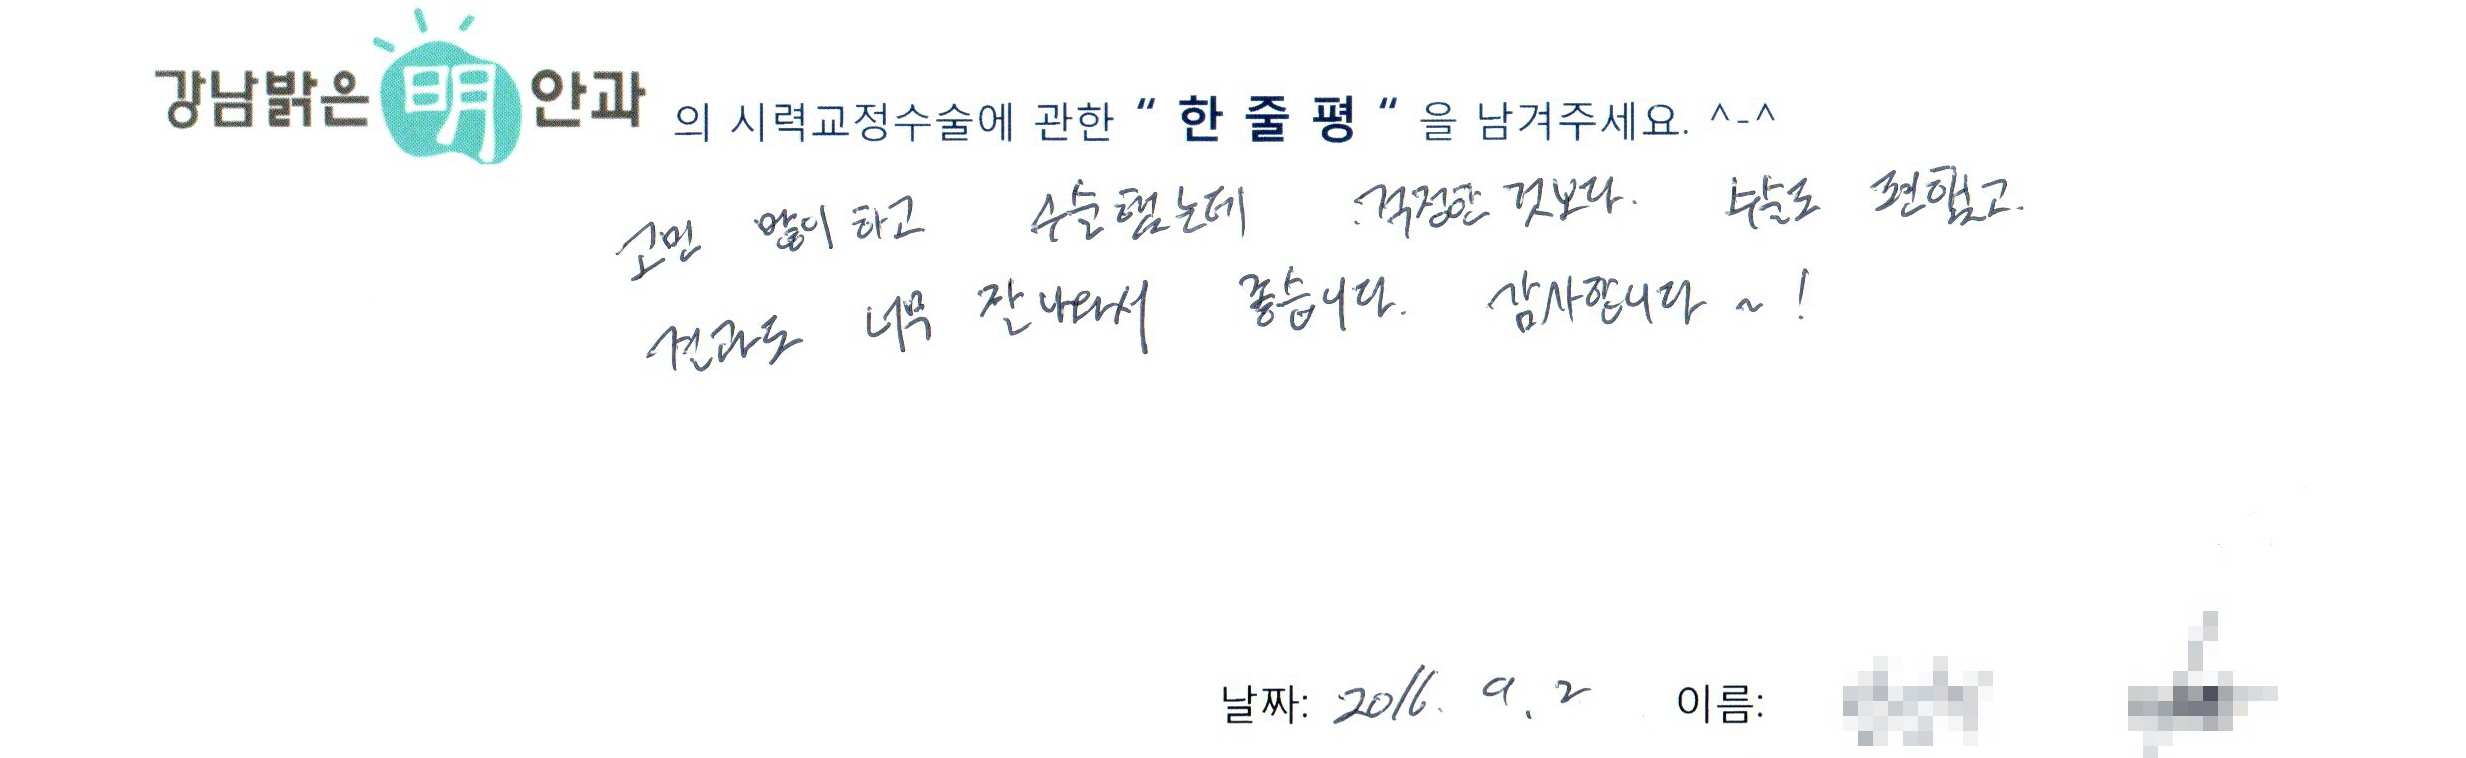 강남밝은 明 안과 의 시력교정수술에 관한 “ 한 줄 평 “ 을 남겨주세요. ^-^
고민 많이 하고 수술했는데 걱정한 것보다. 수술도 편했고.
결과도 너무 잘 나와서 좋습니다. 감사합니다 ~ !
날짜: 2016. 9. 2 이름: